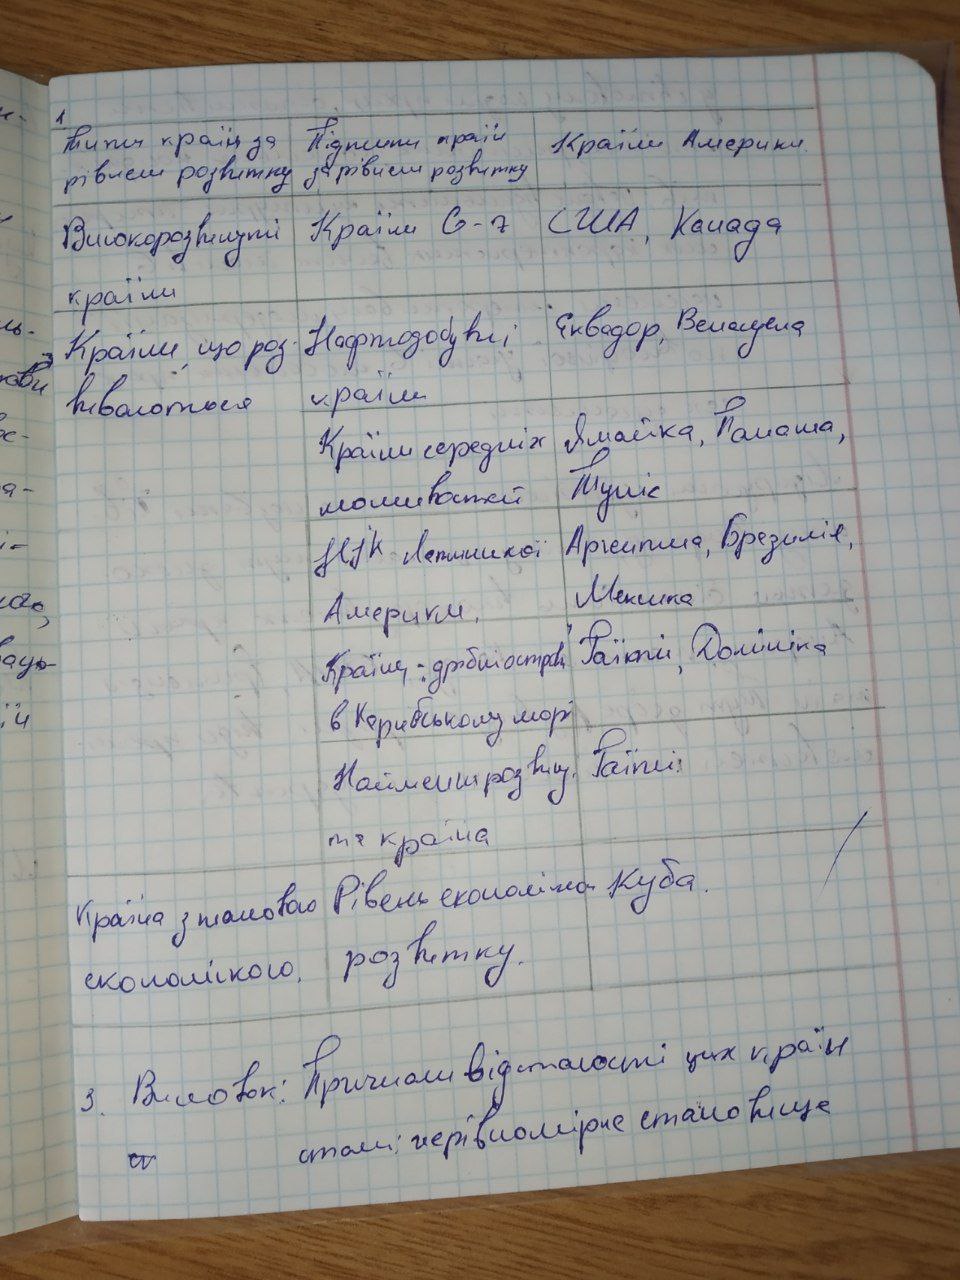 1
Типи країн за
рівнем розвитку
Підтипи країн
за рівнем розвитку
Країни Америки.
Високорозвинуті
країни
Країни G-7
США, Канада
Країни, що роз-
виваються
Нафтодобувні
країни
Еквадор, Венесуела
Країни середніх
можливостей
Ямайка, Панама,
Туніс
НІК Латинської
Америки.
Аргентина, Бразилія,
Мексика
Країни: дрібні острови
в Карибському морі
Гаїті, Домініка
Найменшрозвину-
та країна
Гаїті.
Країна з плановою
економікою.
Рівень економічно
розвитку.
Куба.
3. Висновок: Причинами відсталості цих країн
стали: нерівномірне становище